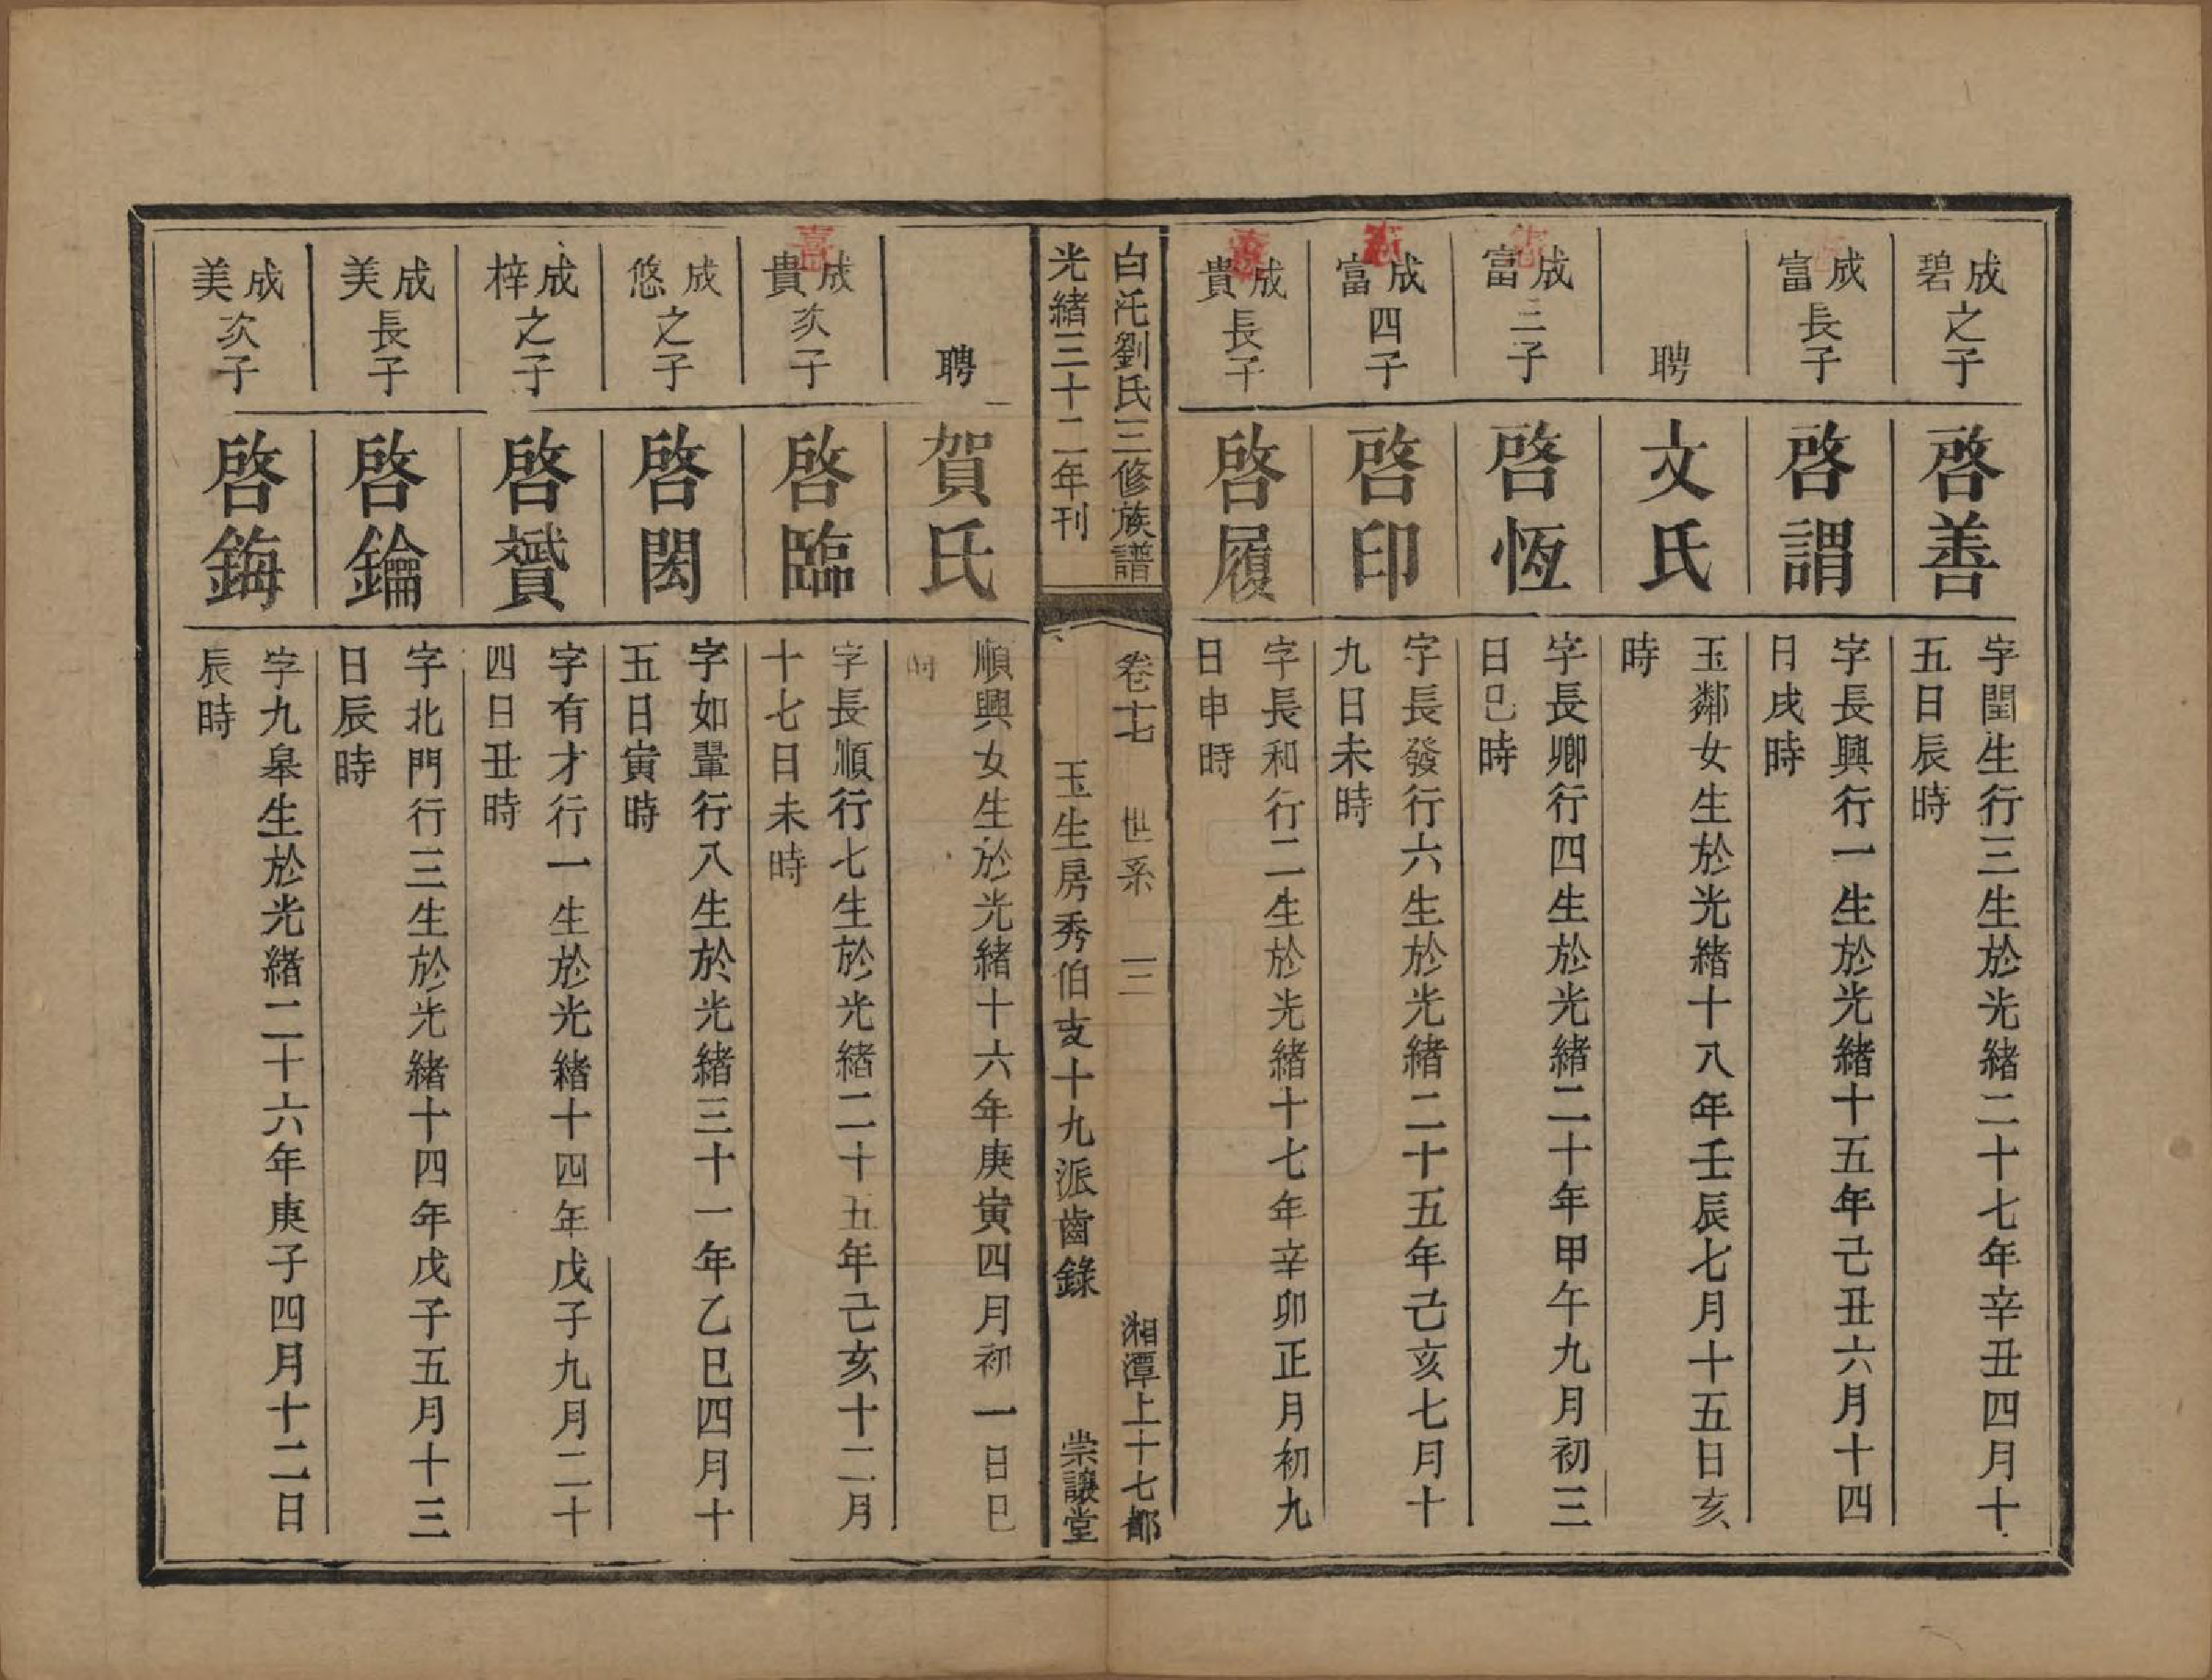 成碧之子
啓善
字閏生行三生於光緒二十七年辛丑四月十
五日辰時
成富長子
啓謂
字長興行一生於光緒十五年己丑六月十四
日戌時
聘
文氏
玉鄰女生於光緒十八年壬辰七月十五日亥
時
成富三子
啓恆
字長卿行四生於光緒二十年甲午九月初三
日巳時
成富四子
啓印
字長發行六生於光緒二十五年己亥七月十
九日未時
成貴長子
啓履
字長和行二生於光緒十七年辛卯正月初九
日申時
白汑劉氏三修族譜
卷十七 世系 三 湘潭上十七都
光緒三十二年刊
玉生房秀伯支十九派齒錄 崇讓堂
聘
賀氏
順興女生於光緒十六年庚寅四月初一日巳
時
成貴次子
啓臨
字長順行七生於光緒二十五年己亥十二月
十七日未時
成悠之子
啓閎
字如翬行八生於光緒三十一年乙巳四月十
五日寅時
成梓之子
啓贇
字有才行一生於光緒十四年戊子九月二十
四日丑時
成美長子
啓鑰
字北門行三生於光緒十四年戊子五月十三
日辰時
成美次子
啓鋂
字九皋生於光緒二十六年庚子四月十二日
辰時